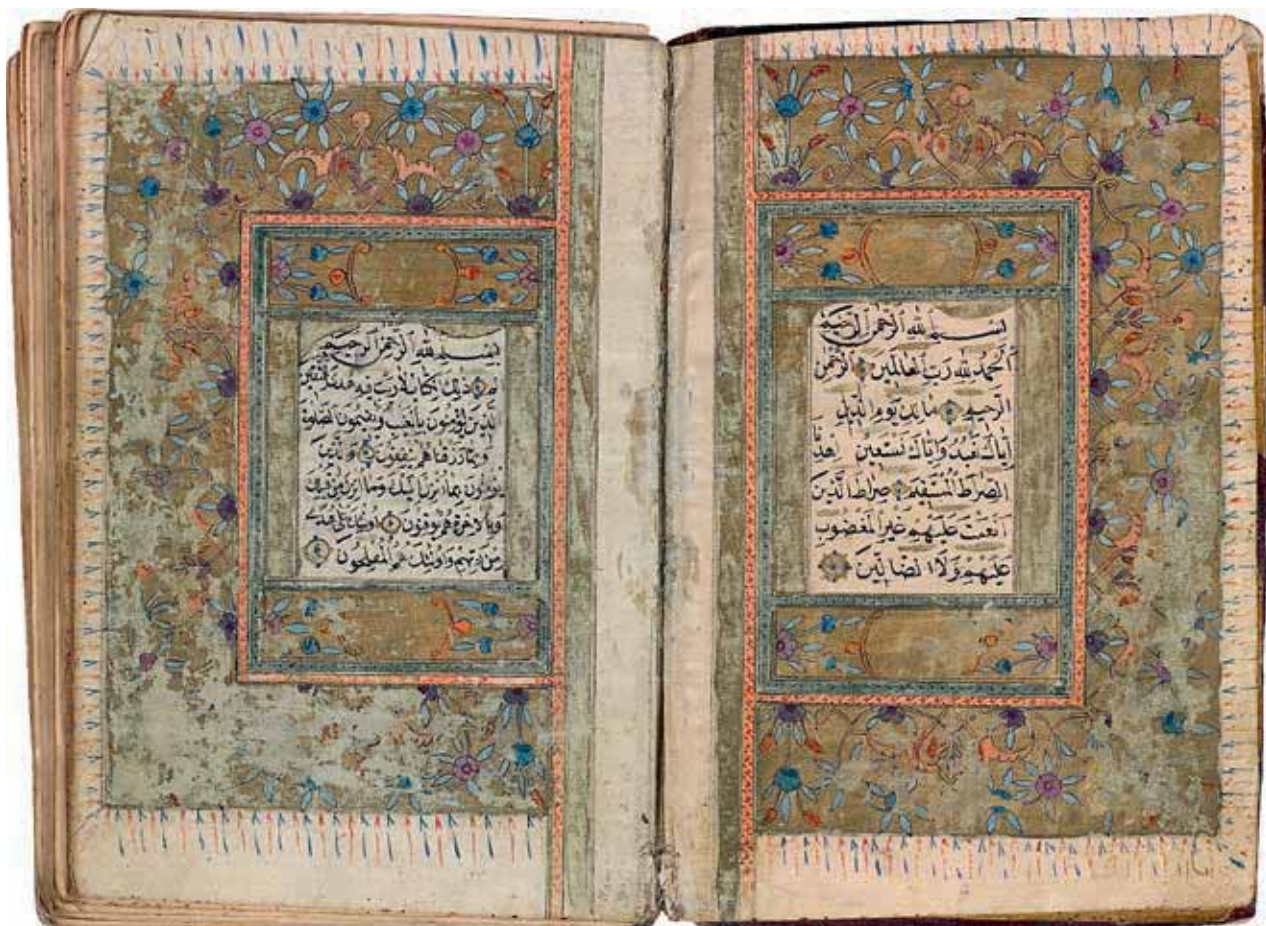 بسم الله الرحمن الرحيم
الحمد لله رب العالمين الرحمن
الرحيم مالك يوم الدين
اياك نعبد واياك نستعين اهدنا
الصراط المستقيم صراط الذين
انعمت عليهم غير المغضوب
عليهم ولا الضالين
بسم الله الرحمن الرحيم
الم ذلك الكتاب لا ريب فيه هدى للمتقين
الذين يؤمنون بالغيب ويقيمون الصلوة
ومما رزقناهم ينفقون والذين
يؤمنون بما انزل اليك وما انزل من قبلك
وبالاخرة هم يوقنون اولئك على هدى
من ربهم واولئك هم المفلحون